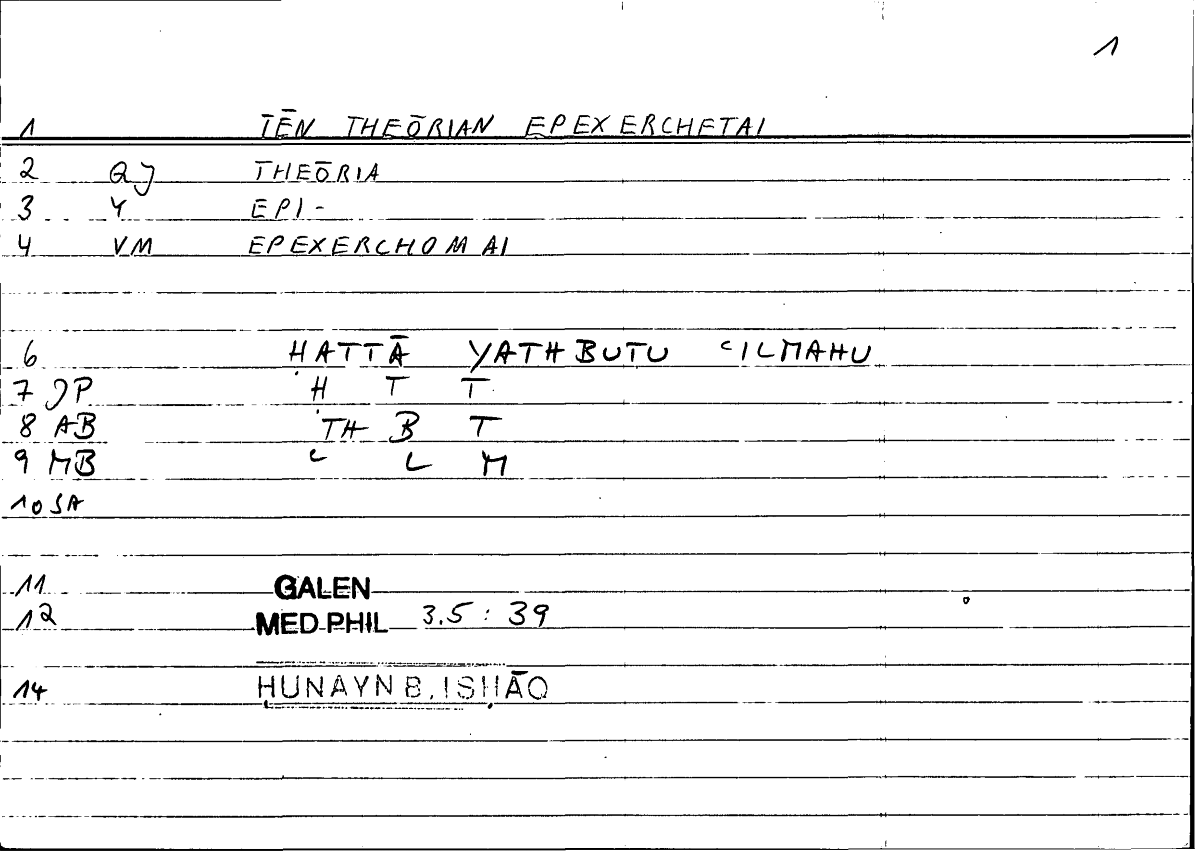 1
1 TĒN THEŌRIAN EPEXERCHETAI
2 QJ THEŌRIA
3 Y EPI-
4 VM EPEXERCHOMAI
6 ḤATTĀ YATHBUTU ʿILMAHU
7 JP Ḥ T T
8 AB TH B T
9 MB ʿ L M
10 SA
11 GALEN
12 MED.PHIL 3.5 : 39
14 ḤUNAYN B. ISḤĀQ